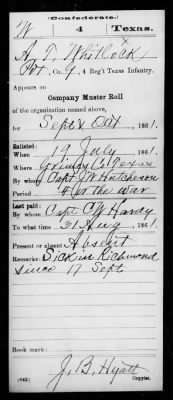 (Confederate.)
W 4 Texas.
A. T. Whitlock
Pvt, Co. G, 4 Reg't Texas Infantry.
Appears on
Company Muster Roll
of the organization named above,
for Sept & Oct, 1861.
Enlisted:
When 19 July, 1861.
Where Grimes Co Texas
By whom Capt J W Hutcheson
Period for the war
Last paid:
By whom Capt C Y Hardy
To what time 31 Aug, 1861.
Present or absent Absent
Remarks: Sick in Richmond
since 17 Sept
Book mark:
J. B. Hyatt
(642) Copyist.